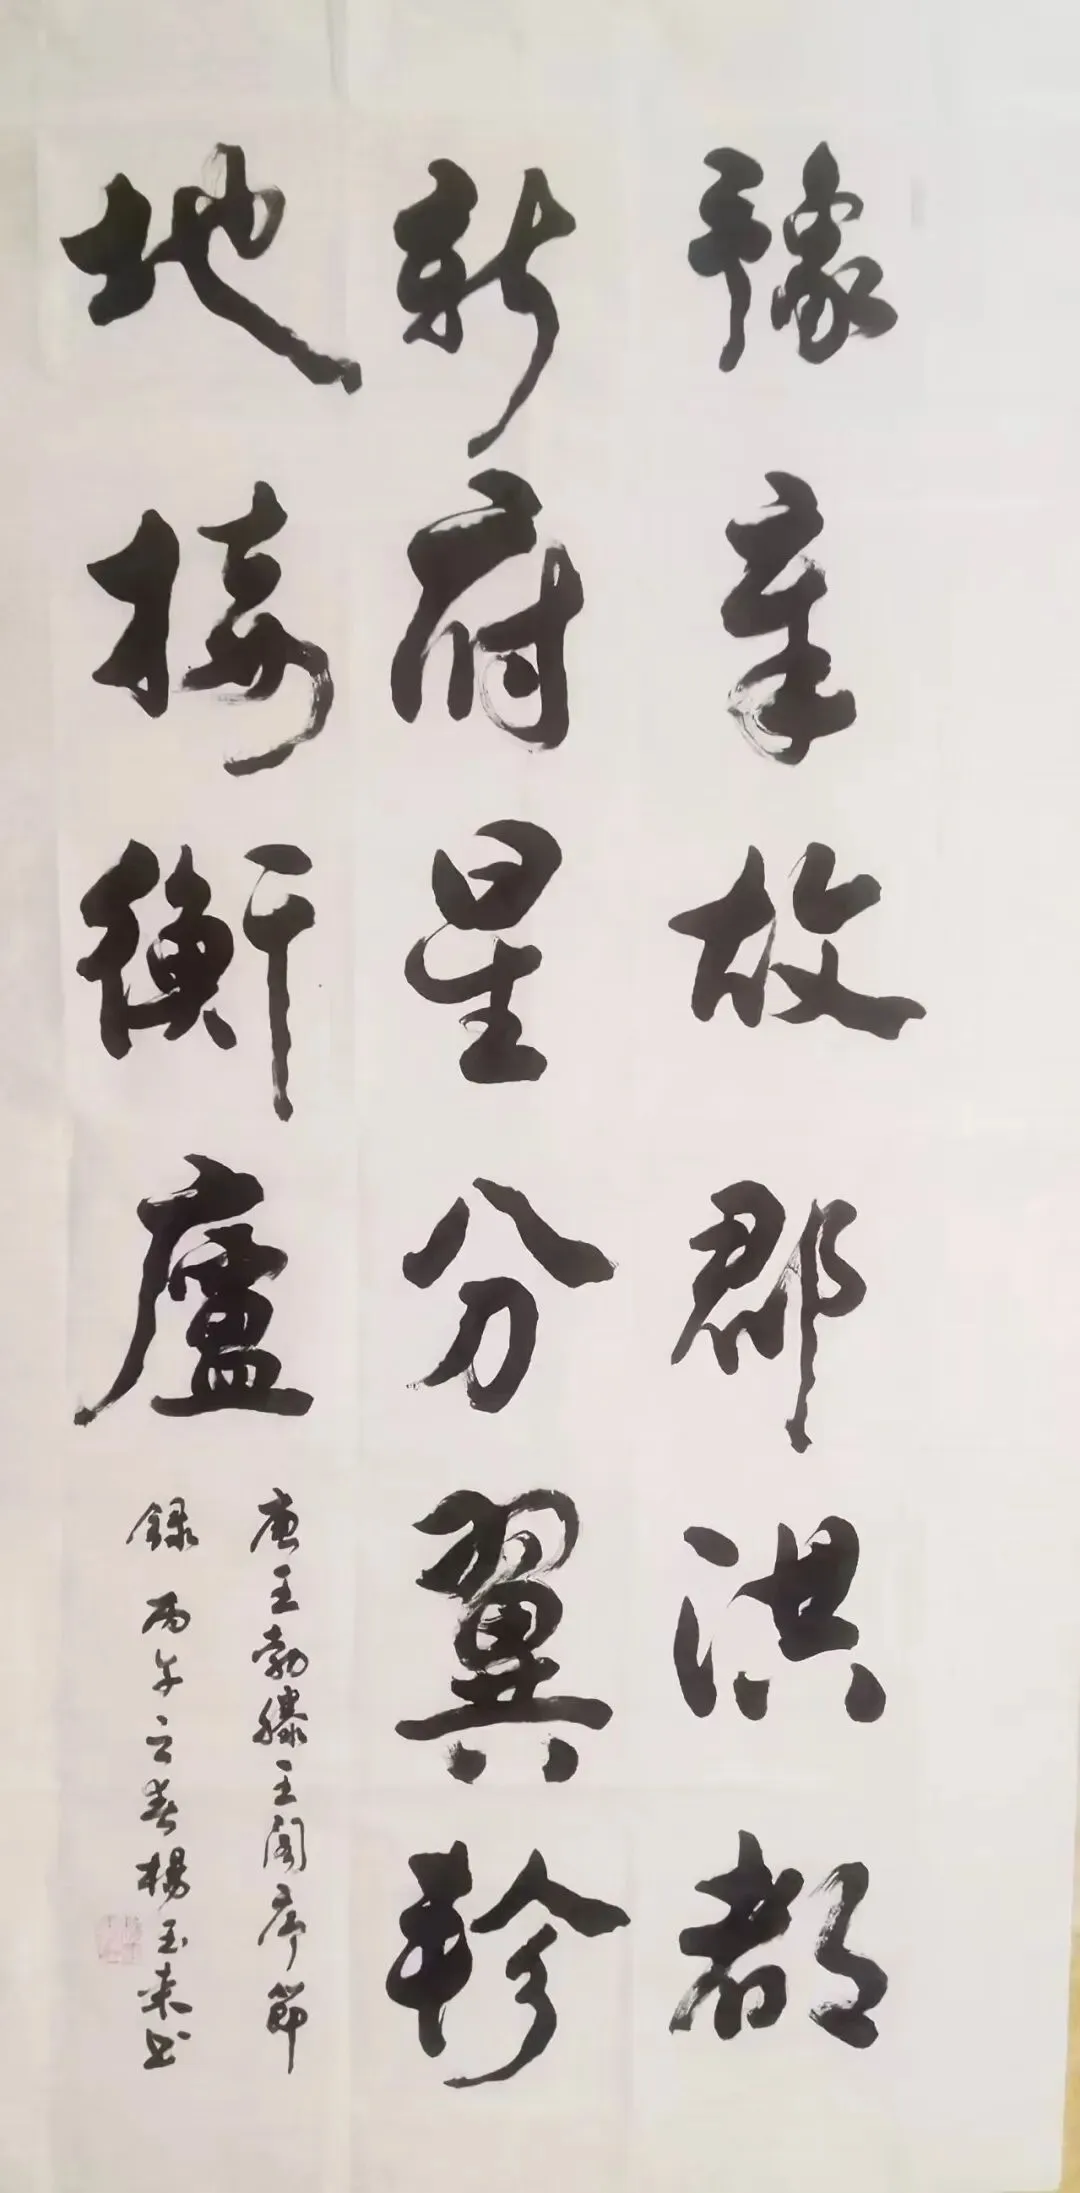 豫章故郡洪都
新府星分翼軫
地接衡廬
唐王勃滕王阁序節
録 丙午立春楊玉来书